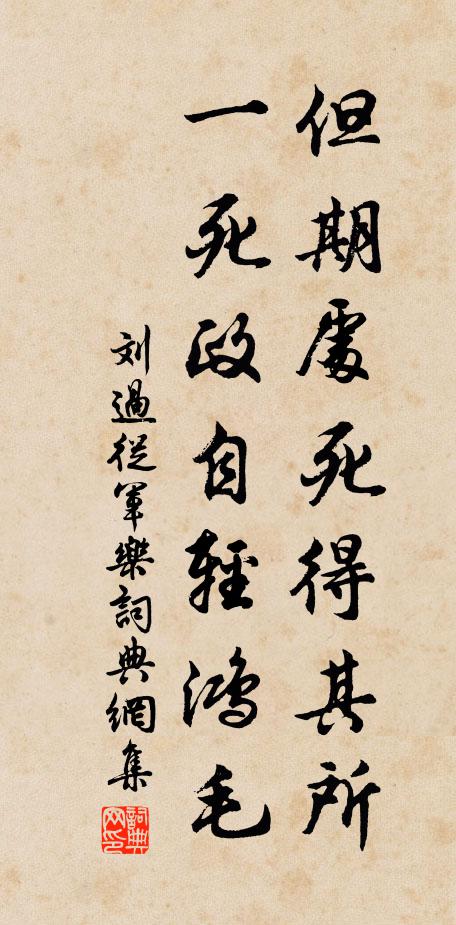 但期處死得其所
一死政自輕鴻毛
刘過從軍樂詞典網集
詞典网印